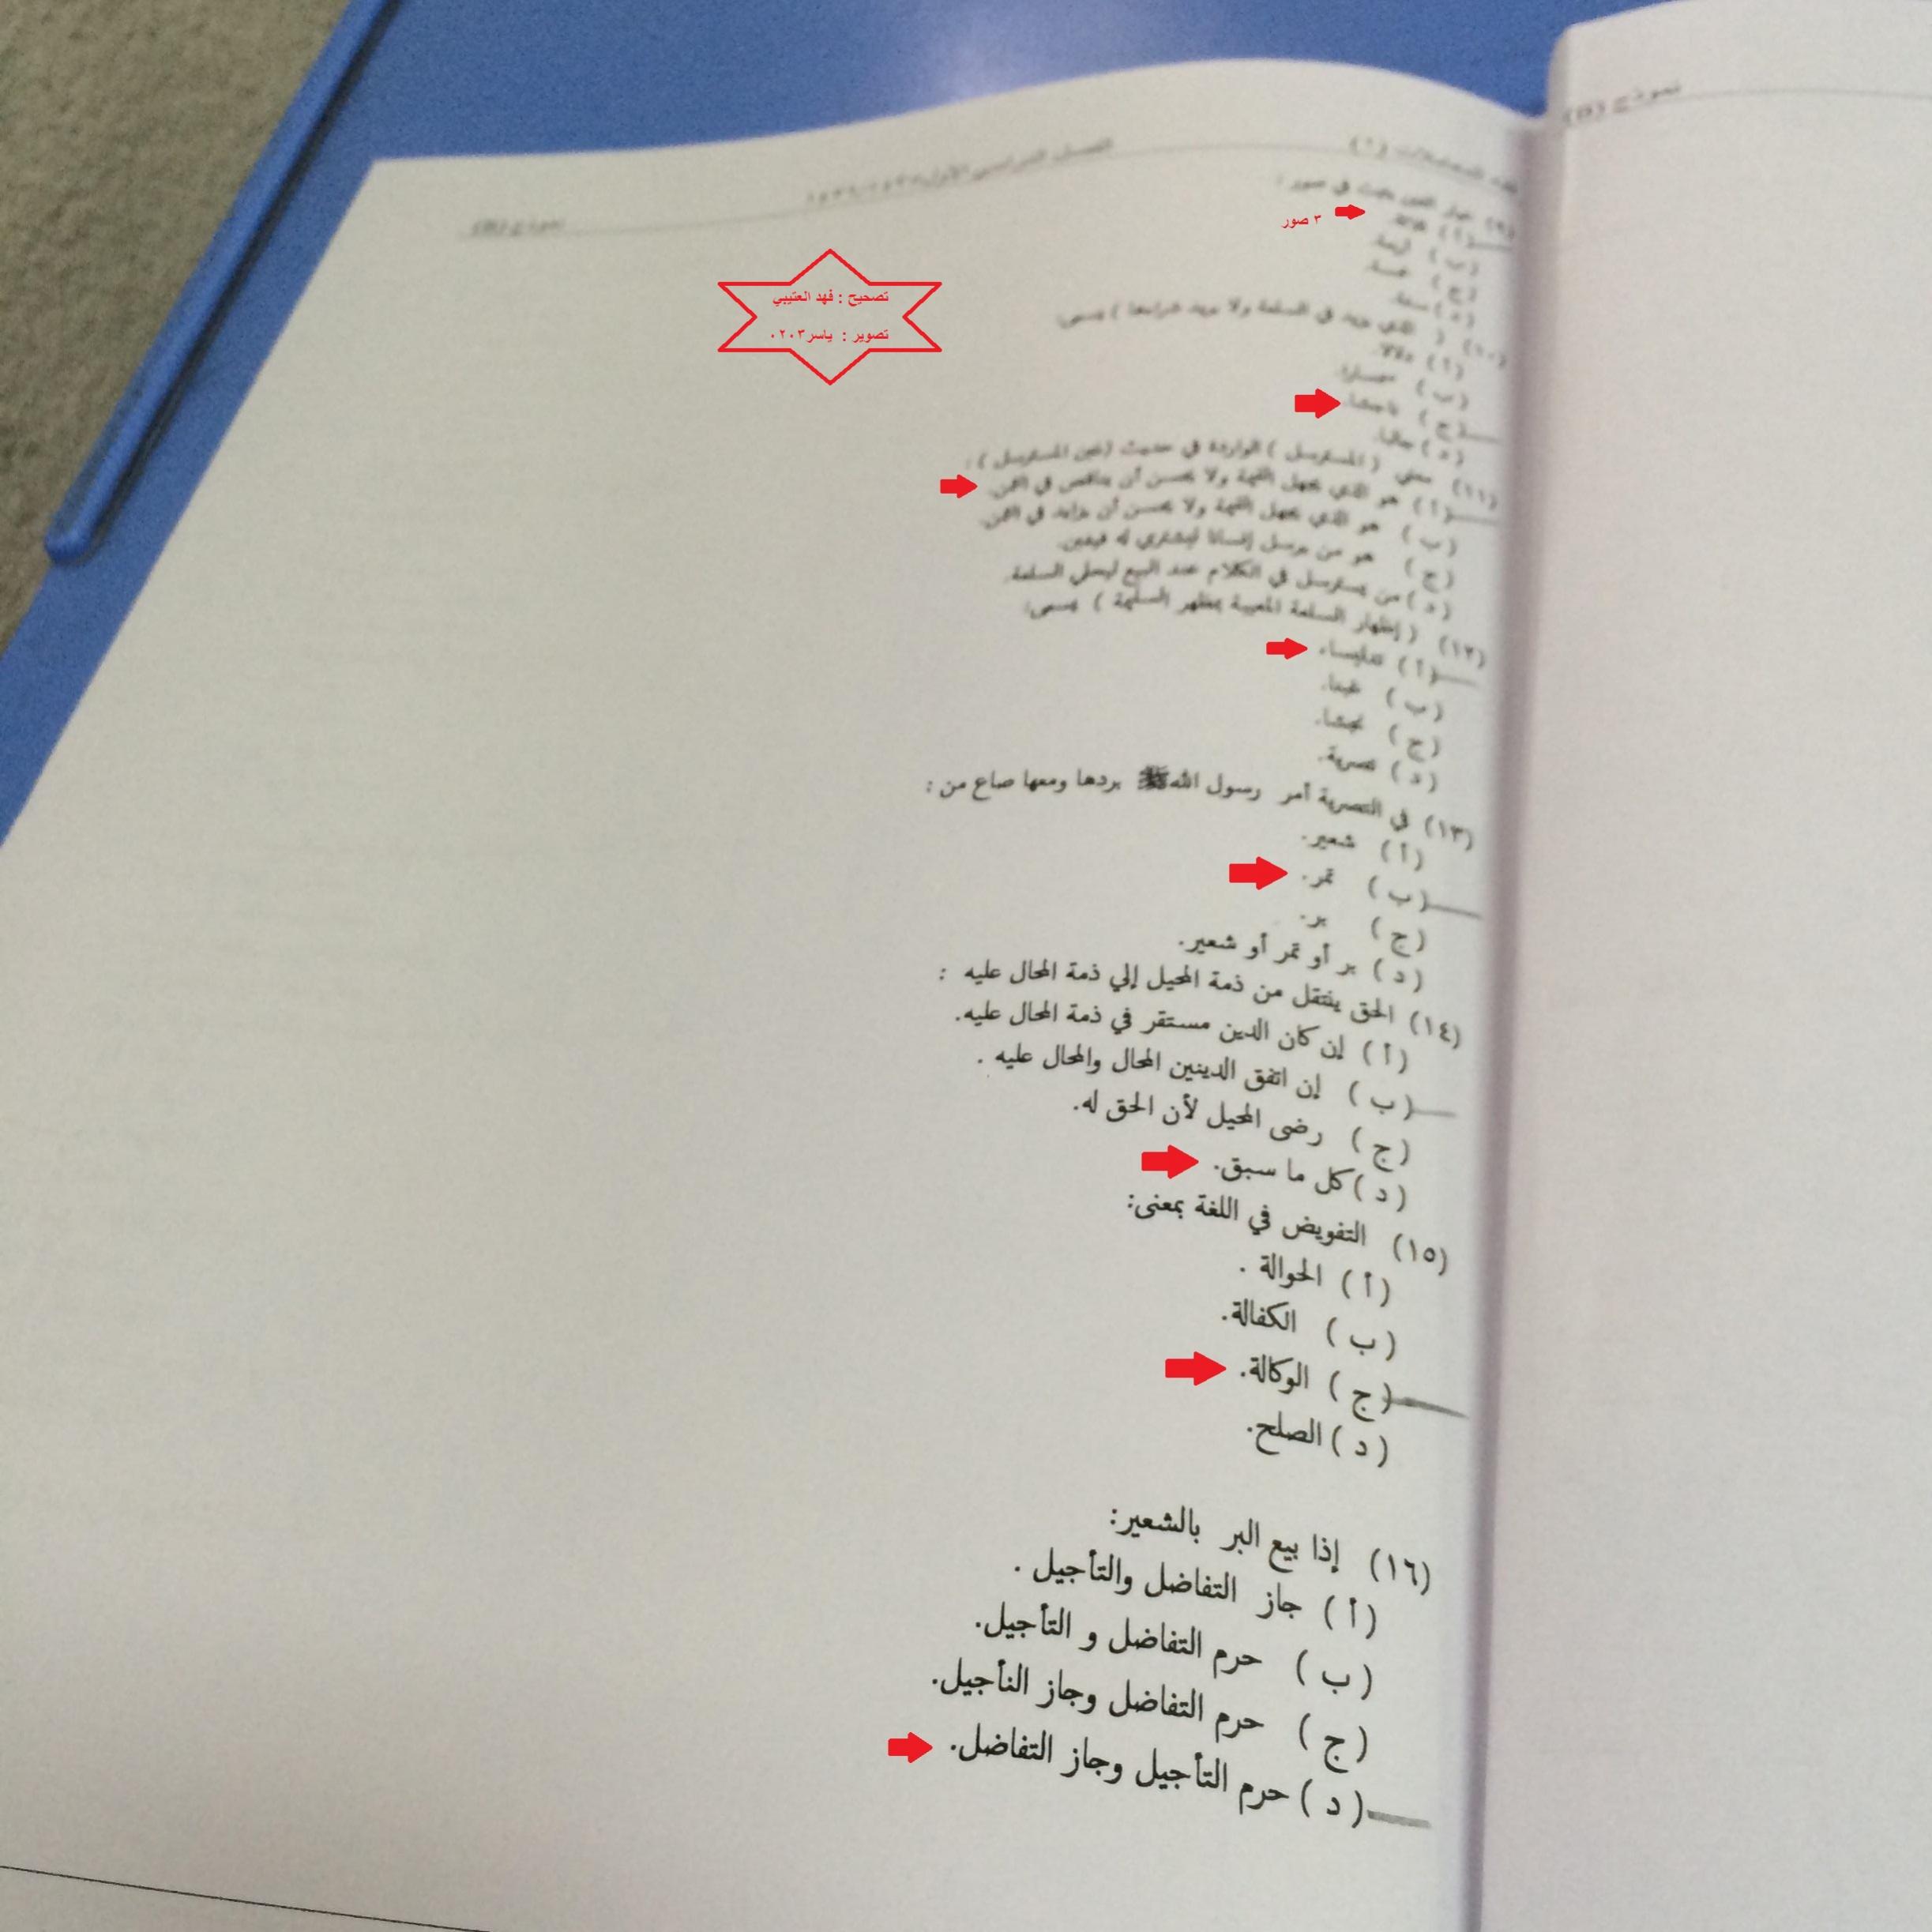 نموذج (B)
فقه المعاملات (١)
الفصل الدراسي الأول
نموذج (B)
(٩) خيار الغبن يثبت في صور :
(أ) ثلاثة.
٣ صور
(ب) أربعة.
(ج) خمسة.
(د) ستة.
(١٠) ( الذي يزيد في السلعة ولا يريد شراءها ) يسمى:
(أ) دلالا.
(ب) سمسارا.
(ج) ناجشا.
(د) جالبا.
(١١) معنى ( المسترسل ) الواردة في حديث (غبن المسترسل ) :
(أ) هو الذي يجهل القيمة ولا يحسن أن يناقص في الثمن.
(ب) هو الذي يجهل القيمة ولا يحسن أن يزايد في الثمن.
(ج) هو من يرسل إنسانا ليشتري له فيغبن.
(د) من يسترسل في الكلام عند البيع ليحلي السلعة.
(١٢) ( إظهار السلعة المعيبة بمظهر السليمة ) يسمى:
(أ) تدليسا.
(ب) غبنا.
(ج) نجشا.
(د) تصرية.
(١٣) في التصرية أمر رسول الله ﷺ بردها ومعها صاع من :
(أ) شعير.
(ب) تمر.
(ج) بر.
(د) بر أو تمر أو شعير.
(١٤) الحق ينتقل من ذمة المحيل إلي ذمة المحال عليه :
(أ) إن كان الدين مستقر في ذمة المحال عليه.
(ب) إن اتفق الدينين المحال والمحال عليه .
(ج) رضى المحيل لأن الحق له.
(د) كل ما سبق.
(١٥) التفويض في اللغة بمعنى:
(أ) الحوالة .
(ب) الكفالة.
(ج) الوكالة.
(د) الصلح.
(١٦) إذا بيع البر بالشعير:
(أ) جاز التفاضل والتأجيل .
(ب) حرم التفاضل و التأجيل.
(ج) حرم التفاضل وجاز التأجيل.
(د) حرم التأجيل وجاز التفاضل.
تصحيح : فهد العتيبي
تصوير : ياسر٠٢٠٣